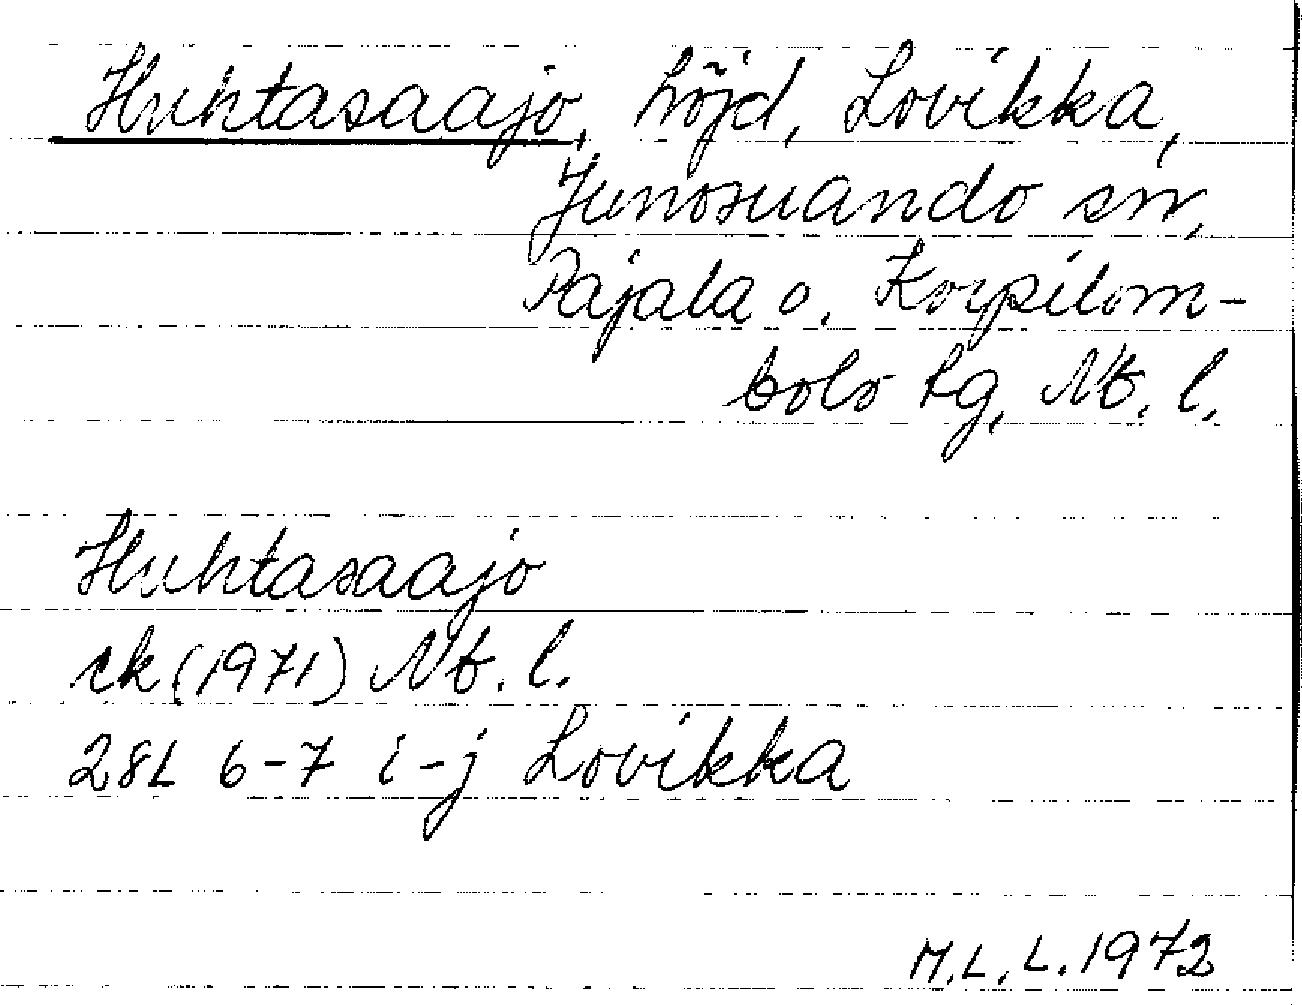 Huhtasaajo, höjd, Lovikka,
Junosuando sn,
Pajala o. Korpilom-
bolo tg, Nb. l.
Huhtasaajo
ek (1971) Nb. l.
28L 6-7 i-j Lovikka
M.L.L. 1972